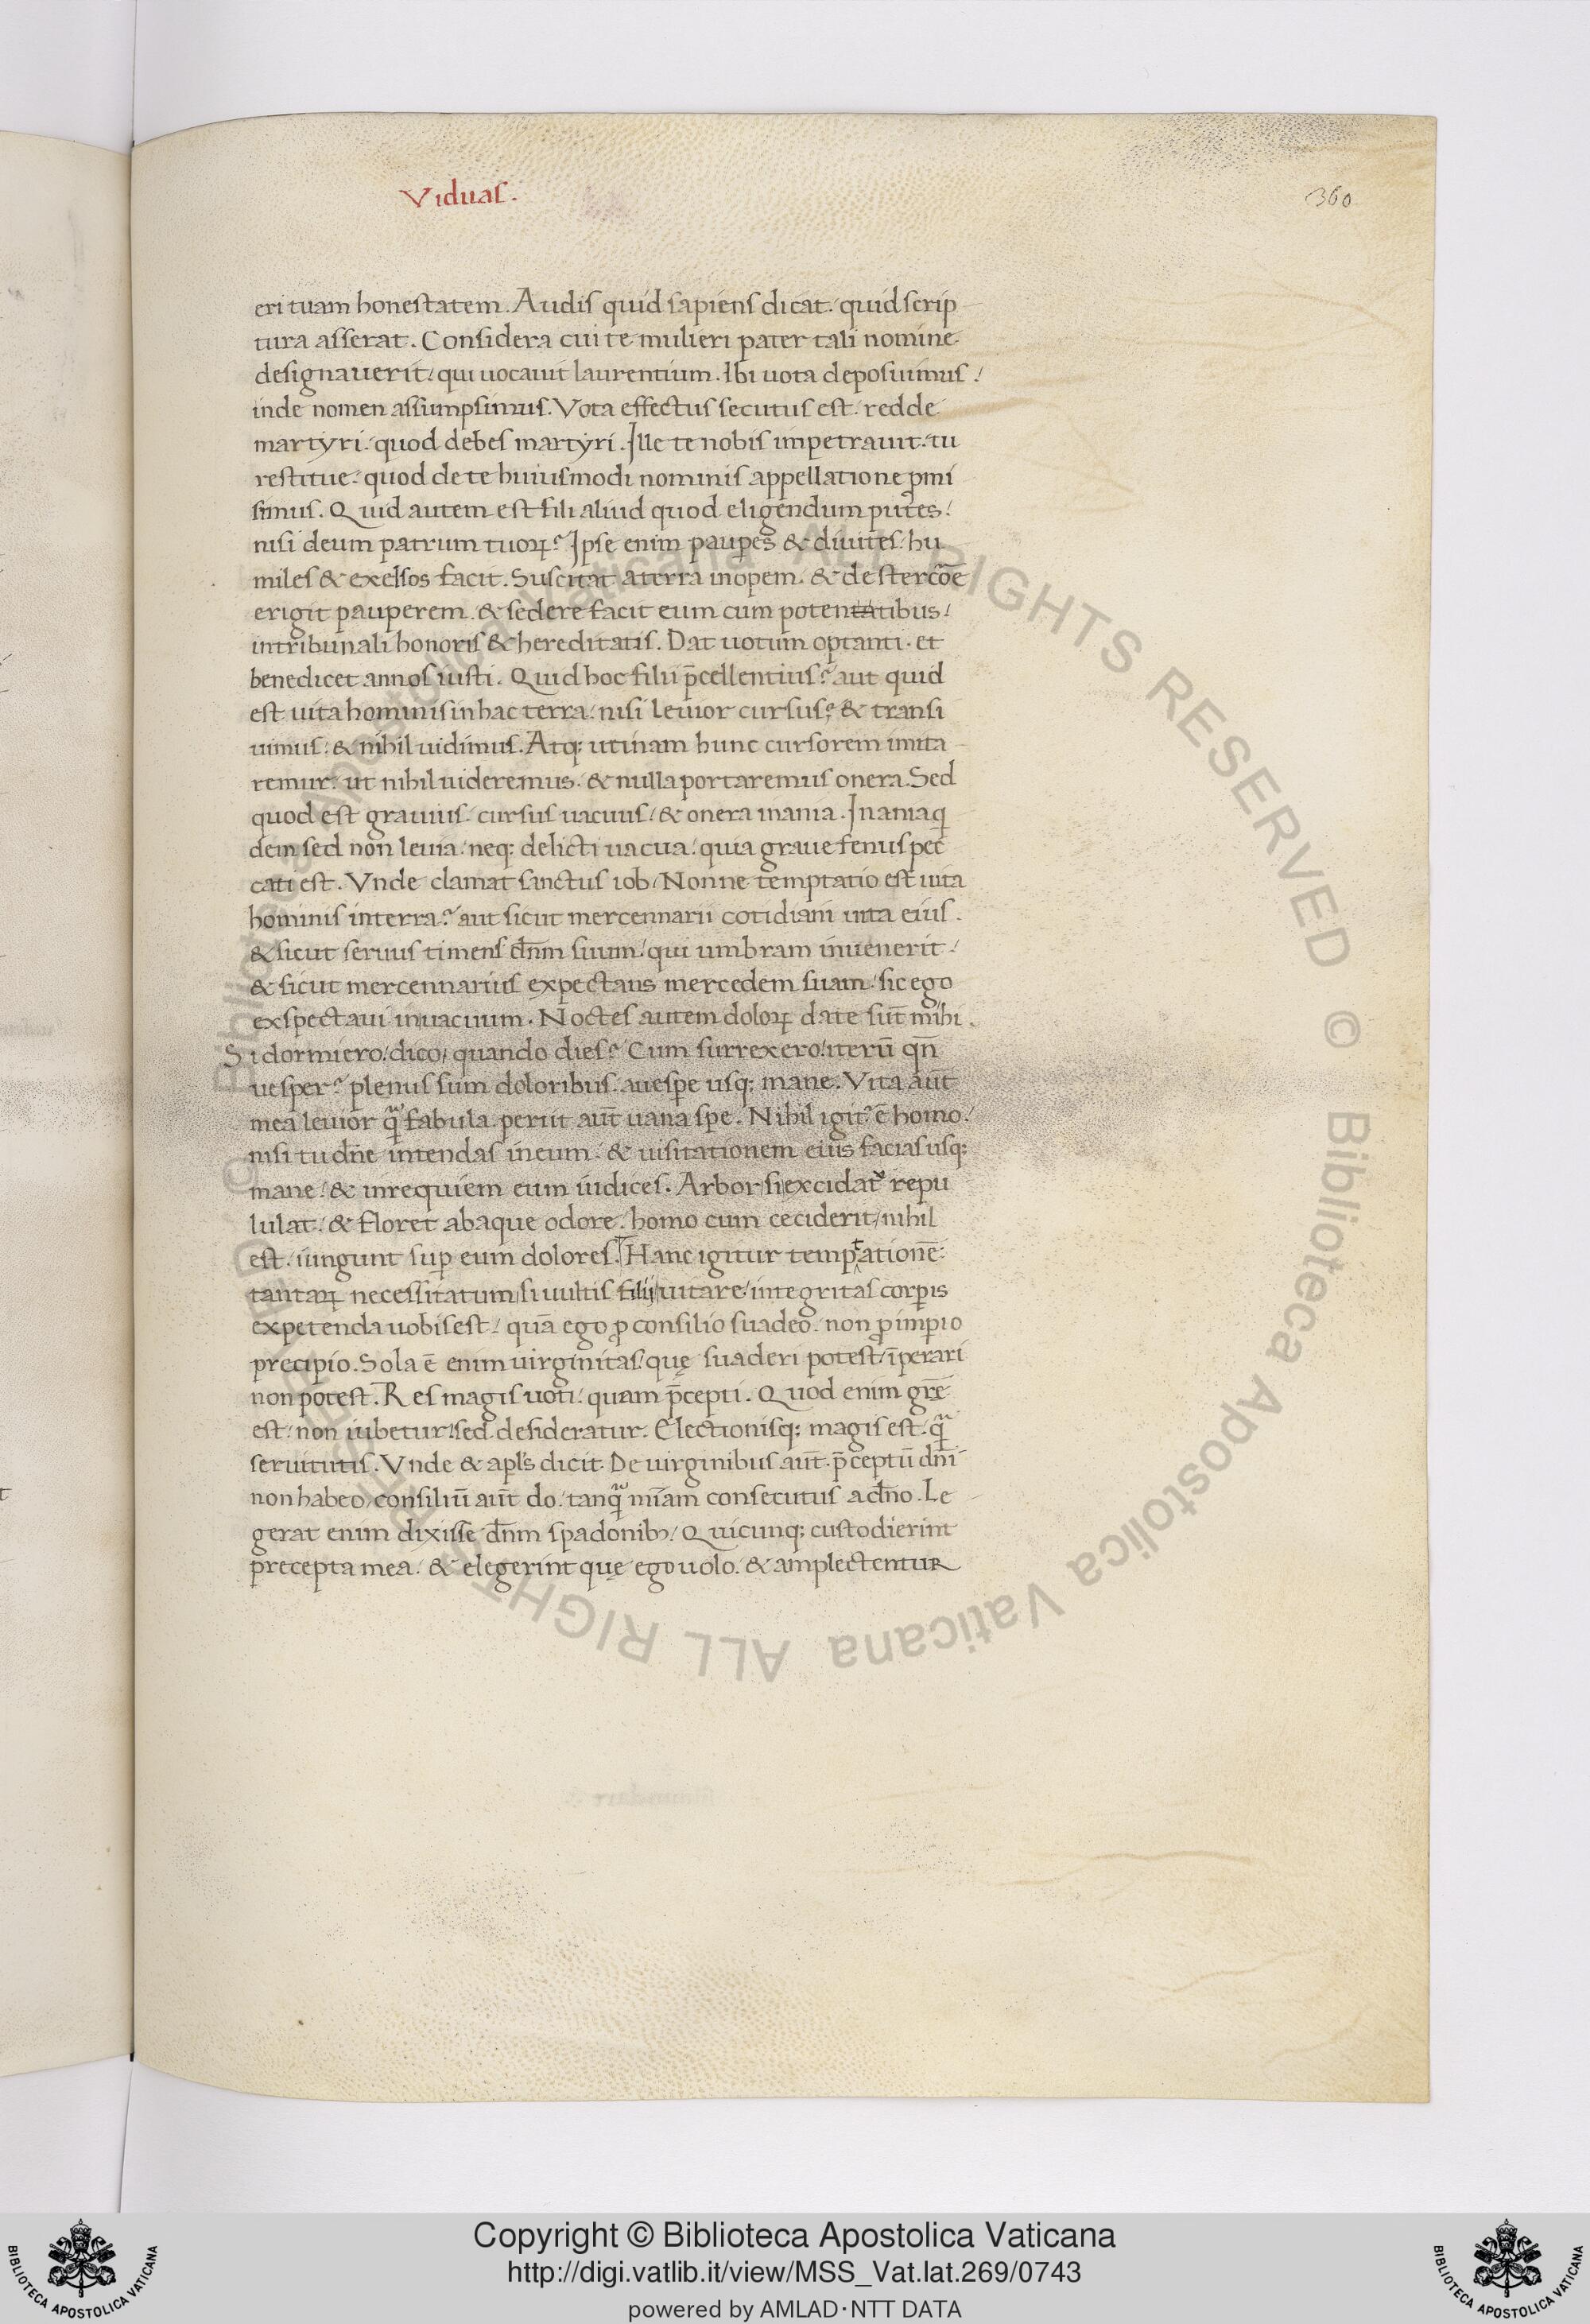 Viduas.
360
eri tuam honestatem. Audis quid sapiens dicat. quid scrip
tura asserat. Considera cui te mulieri pater tali nomine
designauerit. qui uocauit laurentium. Ibi uota deposuimus.
inde nomen assumpsimus. Vota effectus secutus est. redde
martyri. quod debes martyri. Ille te nobis impetrauit. tu
restitue. quod de te huiusmodi nominis appellatione ꝓmi
simus. Quid autem est fili aliud quod eligendum putes.
nisi deum patrum tuoꝝ? Ipse enim pauꝑes & diuites. hu
miles & exelsos facit. Suscitat a terra inopem. & de stercōe
erigit pauperem. & sedere facit eum cum potentatibus.
in tribunali honoris & hereditatis. Dat uotum optanti. et
benedicet annos iusti. Quid hoc filii p̄cellentius? aut quid
est uita hominis in hac terra. nisi leuior cursus? & transi
uimus. & nihil uidimus. Atq; utinam hunc cursorem imita
remur. ut nihil uideremus. & nulla portaremus onera. Sed
quod est grauius. cursus uacuus. & onera inania. Inania qͥ
dem sed non leuia. neq; delicti uacua. quia graue fenus pec
cati est. Vnde clamat sanctus iob. Nonne temptatio est uita
hominis in terra? aut sicut mercennarii cotidiani uita eius.
& sicut seruus timens dn̄m suum. qui umbram inuenerit.
& sicut mercennarius expectans mercedem suam. sic ego
exspectaui in uacuum. Noctes autem doloꝝ date sūt mihi.
Si dormiero. dico, quando dies? Cum surrexero. iterū qn̄
uesper? plenus sum doloribus. a uesꝑe usq; mane. Vita aūt
mea leuior qᷓ fabula. periit aūt uana spe. Nihil igit᷑ ē homo.
nisi tu dn̄e intendas in eum. & uisitationem eius facias usq;
mane. & in requiem eum iudices. Arbor si excidat᷑ repu
lulat. & floret ab aque odore. homo cum ceciderit. nihil
est. iungunt suꝑ eum dolores. Hanc igitur temptationē.
tantaꝝ necessitatum si uultis filij uitare. integritas corꝑis
expetenda uobis est. quā ego ꝓ consilio suadeo. non ꝓ imꝑio
precipio. Sola ē enim uirginitas. quę suaderi potest. īperari
non potest. Res magis uoti. quam p̄cepti. Quod enim grē
est. non iubetur. sed desideratur. Electionisq; magis est. qᷓ
seruitutis. Vnde & apl's dicit. De uirginibus aūt. p̄ceptū dn̄i
non habeo, consiliū aūt do. tanqᷓ mīam consecutus a dn̄o. Le
gerat enim dixisse dn̄m spadonibꝫ. Quicunq; custodierint
precepta mea. & elegerint quę ego uolo. & amplectentur
Copyright © Biblioteca Apostolica Vaticana
http://digi.vatlib.it/view/MSS_Vat.lat.269/0743
powered by AMLAD·NTT DATA